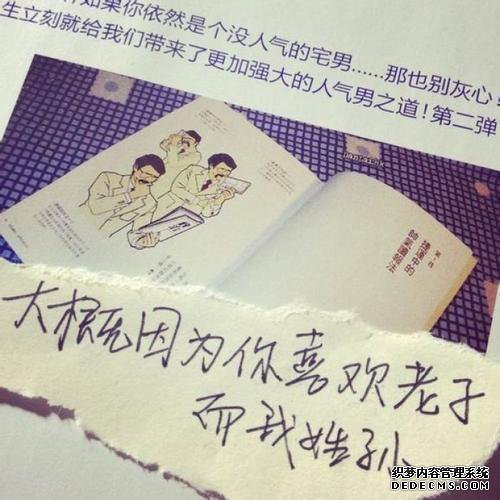 如果你依然是个没人气的宅男……那也别灰心！
生立刻就给我们带来了更加强大的人气男之道！第二弹
大概因为你喜欢老子
而我姓孙
织梦内容管理系统
DEDECMS.COM